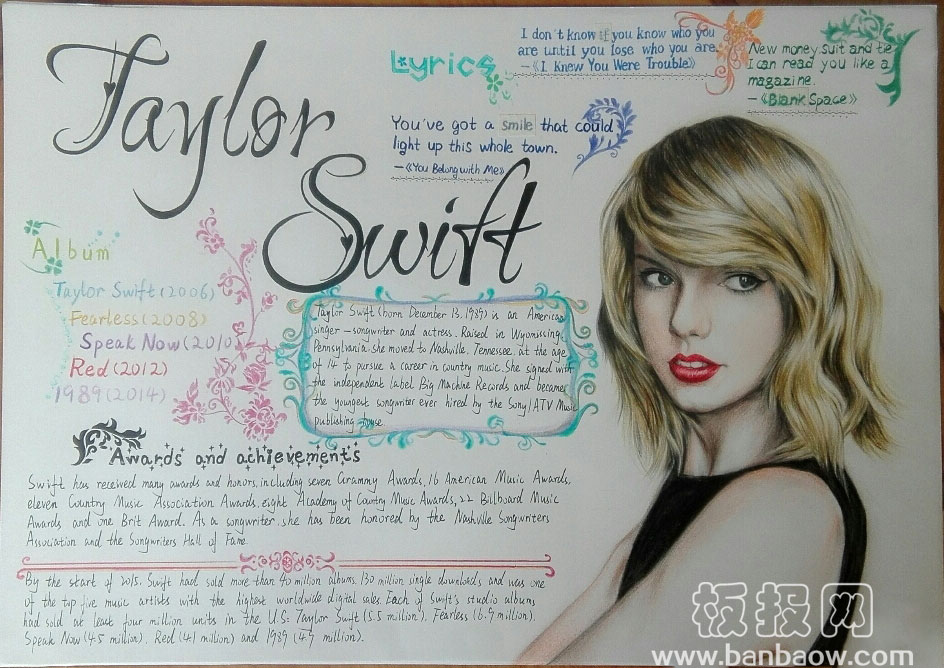 Taylor
Swift
Lyrics
I don't know if you know who you
are until you lose who you are.
—《I Knew You Were Trouble》
New money suit and tie
I can read you like a
magazine.
—《Blank Space》
You've got a smile that could
light up this whole town.
—《You Belong with Me》
Album
Taylor Swift (2006)
Fearless (2008)
Speak Now (2010)
Red (2012)
1989 (2014)
Taylor Swift (born December 13. 1989) is an American
singer-songwriter and actress. Raised in Wyomissing,
Pennsylvania. she moved to Nashville. Tennessee. at the age
of 14 to pursue a career in country music. She signed with
the independent label Big Machine Records and became
the youngest songwriter ever hired by the Sony/ATV Music
publishing house.
Awards and achievements
Swift has received many awards and honors, including seven Grammy Awards, 16 American Music Awards,
eleven Country Music Association Awards, eight Academy of Country Music Awards, 22 Billboard Music
Awards and one Brit Award. As a songwriter. she has been honored by the Nashville Songwriters
Association and the Songwriters Hall of Fame.
By the start of 2015. Swift had sold more than 40 million albums. 130 million single downloads and was one
of the top five music artists with the highest worldwide digital sales. Each of Swift's studio albums
had sold at least four million units in the U.S: Taylor Swift (5.5 million). Fearless (6.9 million).
Speak Now (4.5 million). Red (4.1 million) and 1989 (4.9 million).
板报网
www.banbaow.com